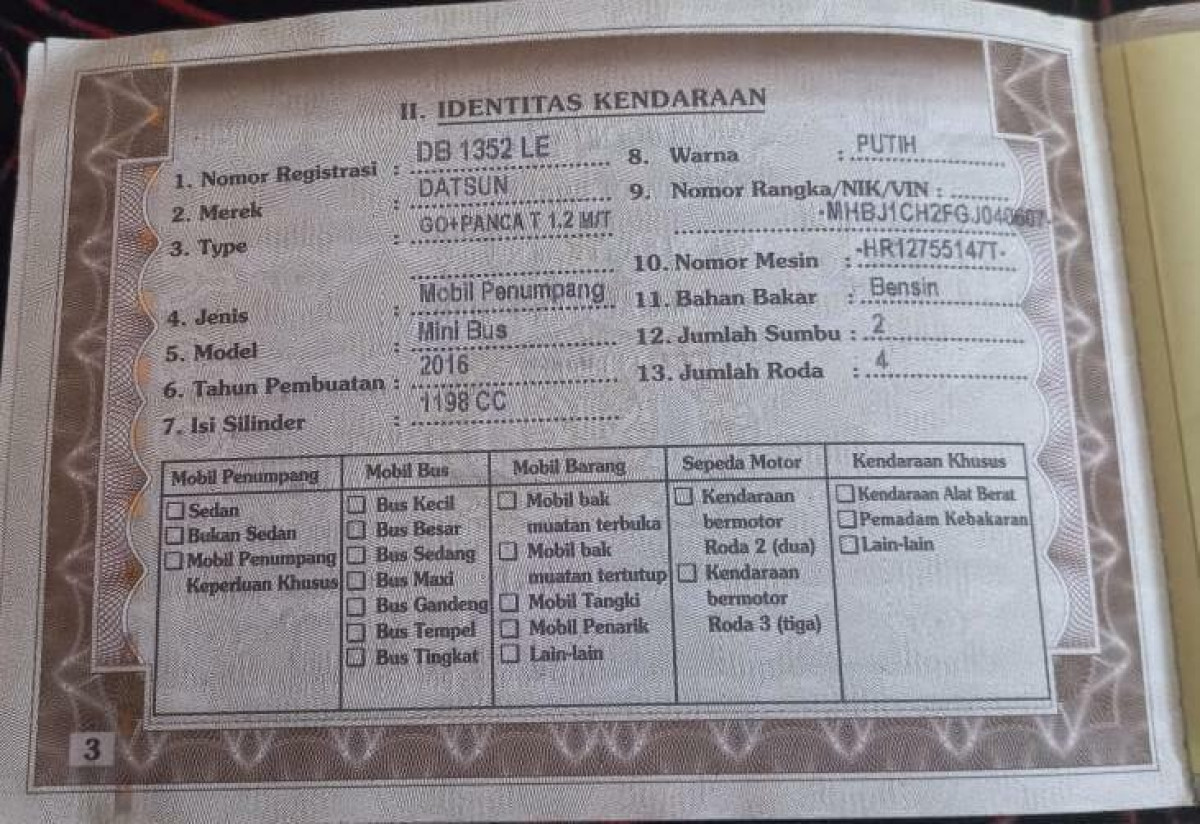 II. IDENTITAS KENDARAAN
1. Nomor Registrasi : DB 1352 LE
2. Merek : DATSUN
3. Type : GO+PANCA T 1.2 M/T
4. Jenis : Mobil Penumpang
5. Model : Mini Bus
6. Tahun Pembuatan : 2016
7. Isi Silinder : 1198 CC
8. Warna : PUTIH
9. Nomor Rangka/NIK/VIN :
-MHBJ1CH2FGJ040607-
10. Nomor Mesin : -HR12755147T-
11. Bahan Bakar : Bensin
12. Jumlah Sumbu : 2
13. Jumlah Roda : 4
Mobil Penumpang
Sedan
Bukan Sedan
Mobil Penumpang
Keperluan Khusus
Mobil Bus
Bus Kecil
Bus Besar
Bus Sedang
Bus Maxi
Bus Gandeng
Bus Tempel
Bus Tingkat
Mobil Barang
Mobil bak
muatan terbuka
Mobil bak
muatan tertutup
Mobil Tangki
Mobil Penarik
Lain-lain
Sepeda Motor
Kendaraan
bermotor
Roda 2 (dua)
Kendaraan
bermotor
Roda 3 (tiga)
Kendaraan Khusus
Kendaraan Alat Berat
Pemadam Kebakaran
Lain-lain
3